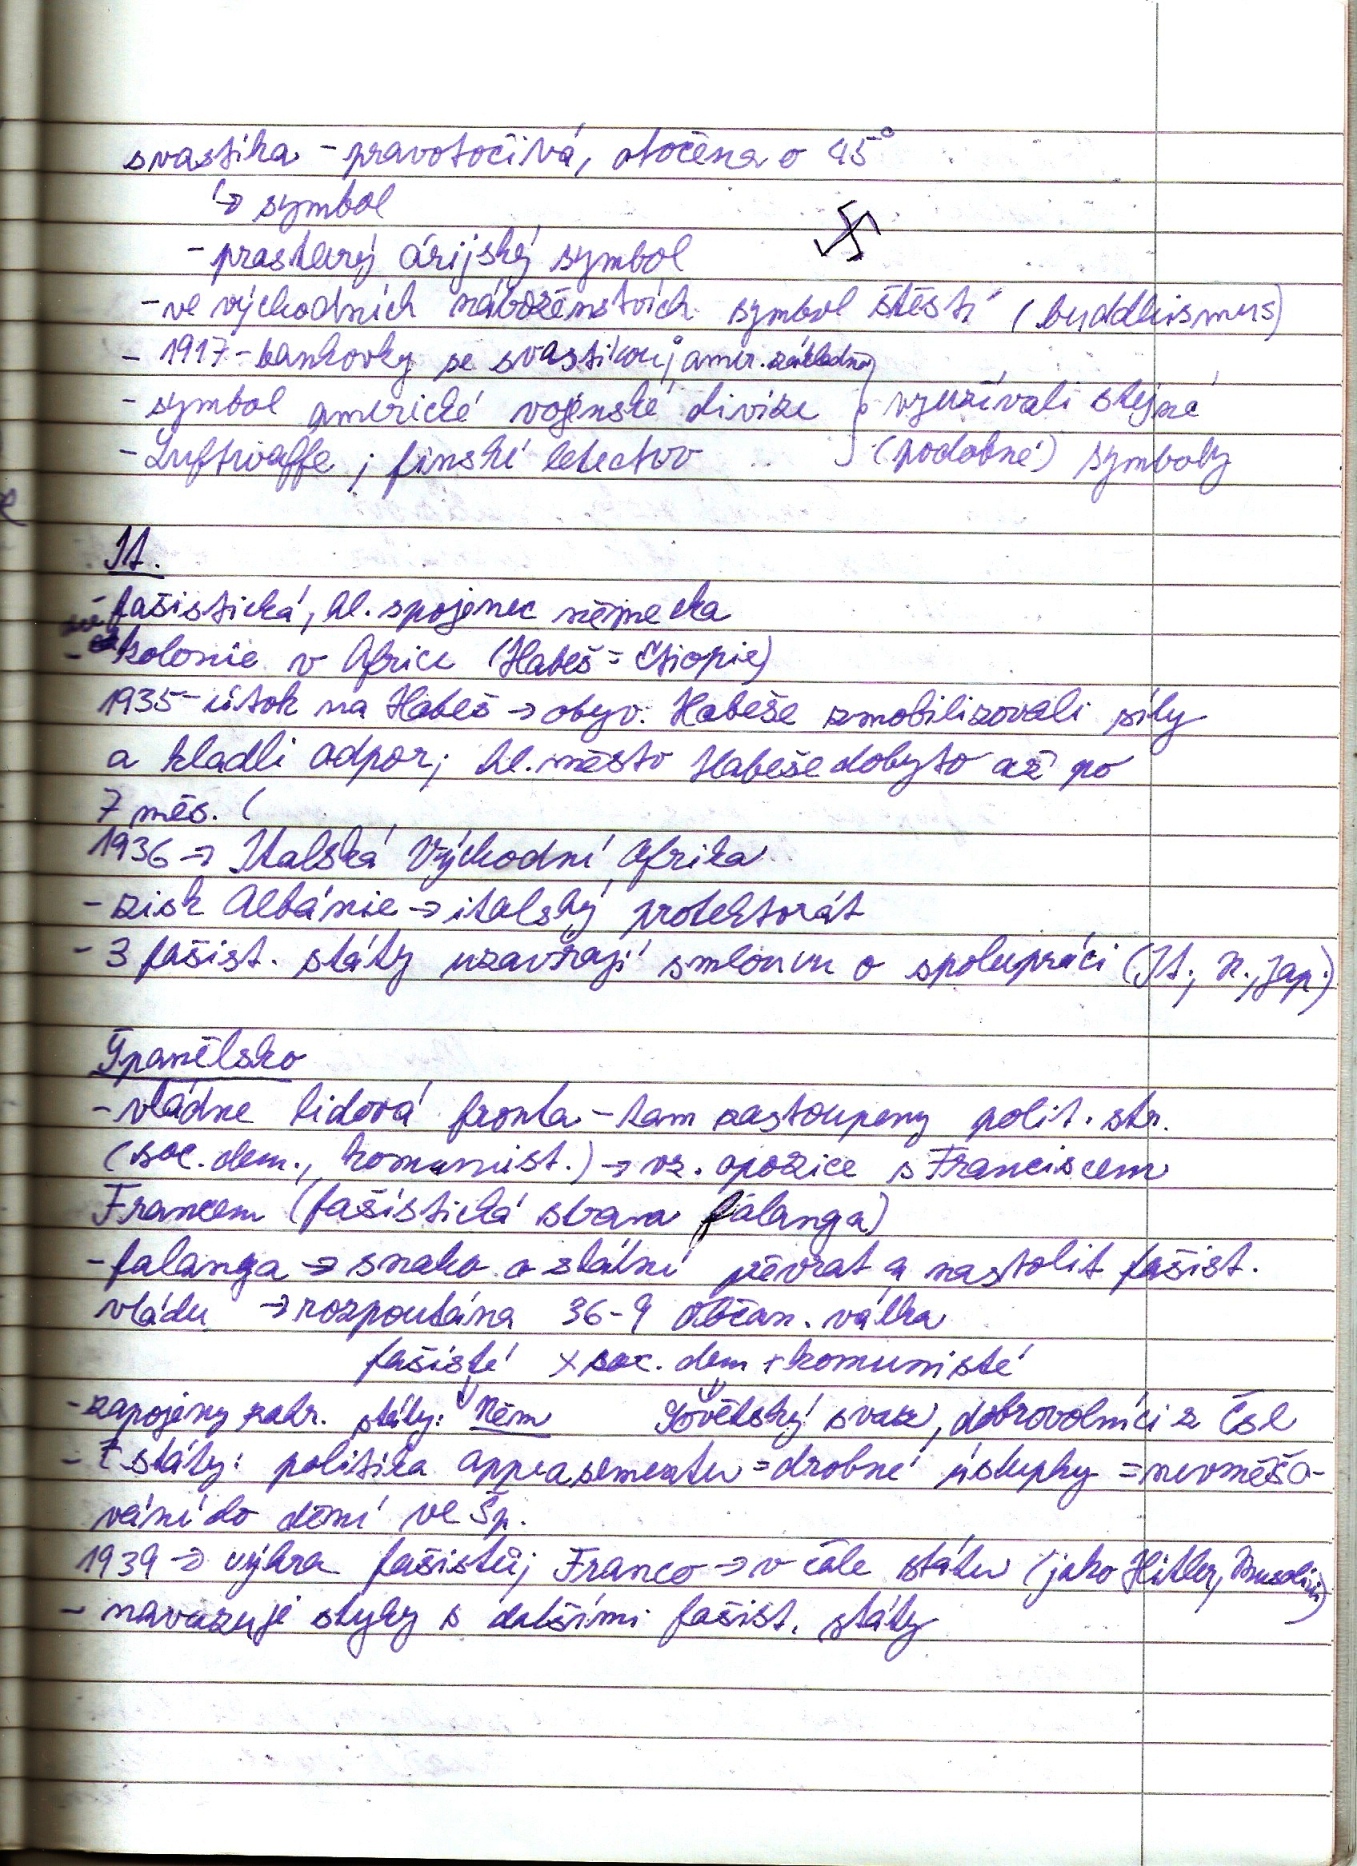 svastika - pravotočivá, otočena o 45°
↳ symbol
- prastarý árijský symbol
- ve východních náboženstvích symbol štěstí (buddhismus)
- 1917 - bankovky se svastikou; amer. základna
- symbol americké vojenské divize } využívali stejné
- Luftwaffe; finské letectvo (podobné) symboly
It.
- fašistická, hl. spojenec německa
- kolonie v Africe (Habeš = Etiopie)
1935 - útok na Habeš → obyv. Habeše zmobilizovali síly
a kladli odpor; hl. město Habeše dobyto až po
7 měs. (
1936 → Italská Východní Afrika
- zisk Albánie → italský protektorát
- 3 fašist. státy uzavřají smlouvu o spolupráci (It., N., Jap.)
Španělsko
- vládne lidová fronta - tam zastoupeny polit. str.
(soc. dem., komunist.) → vz. opozice s Franciscem
Francem (fašistická strana falanga)
- falanga → snaha o státní převrat a nastolit fašist.
vládu → rozpoutána 36-9 občan. válka
fašisté × soc. dem + komunisté
- zapojeny zahr. státy: Něm Sovětský svaz, dobrovolníci z Čsl
- státy: politika appeasementu = drobné ústupky = nevměšo-
vání do dění ve Šp.
1939 → výhra fašistů; Franco → v čele státu (jako Hitler, Musolini)
- navazuje styky s dalšími fašist. státy